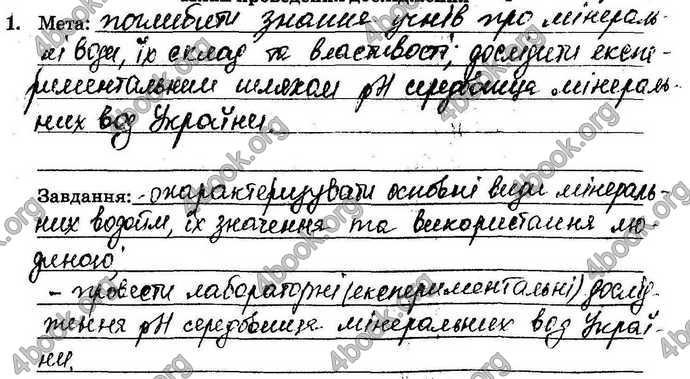 1. Мета: поглибити знання учнів про мінераль-
ні води, їх склад та властивості; дослідити експе-
риментальним шляхом рН середовища мінераль-
них вод України.
Завдання: - охарактеризувати основні види мінераль-
них водойм, їх значення та використання лю-
диною;
- провести лабораторні (експериментальні) дослід-
ження рН середовища мінеральних вод Украї-
ни.
4book.org